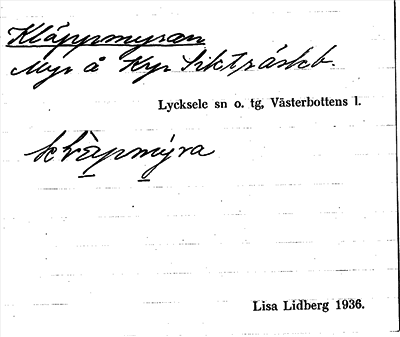 Kläppmyran
Myr å Kyr Siktträskb.
Lycksele sn o. tg, Västerbottens l.
Lisa Lidberg 1936.